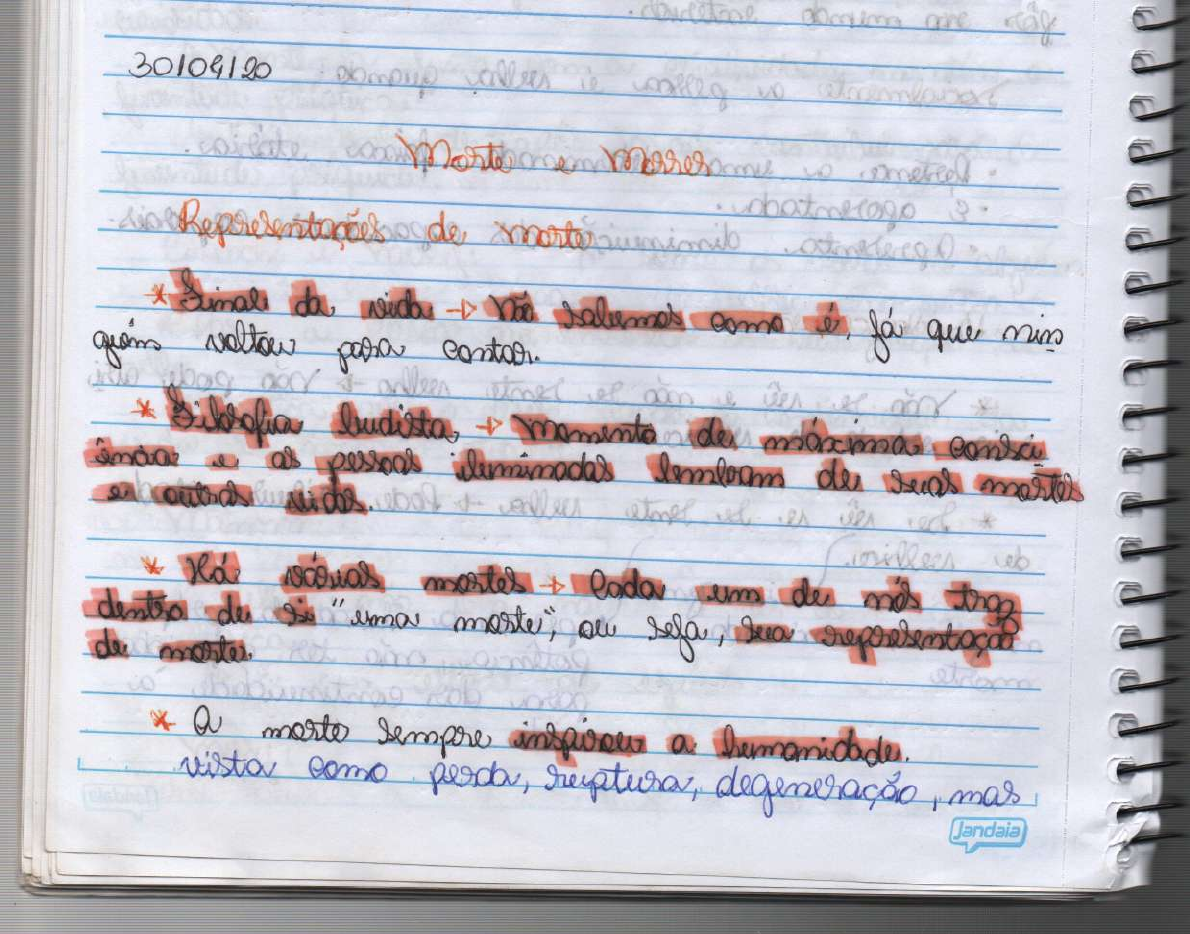 30/09/20
Morte e Morrer
Representações de morte
* Final da vida → Não sabemos como é, já que nin
guém voltou para contar.
* Filosofia budista → Momento de máxima consci
ência e as pessoas iluminadas lembram de suas mortes
e outras vidas.
* Há várias mortes → Cada um de nós traz
dentro de si "uma morte", ou seja, sua representação
de morte.
* A morte sempre inspirou a humanidade.
vista como perda, ruptura, degeneração, mas
Jandaia